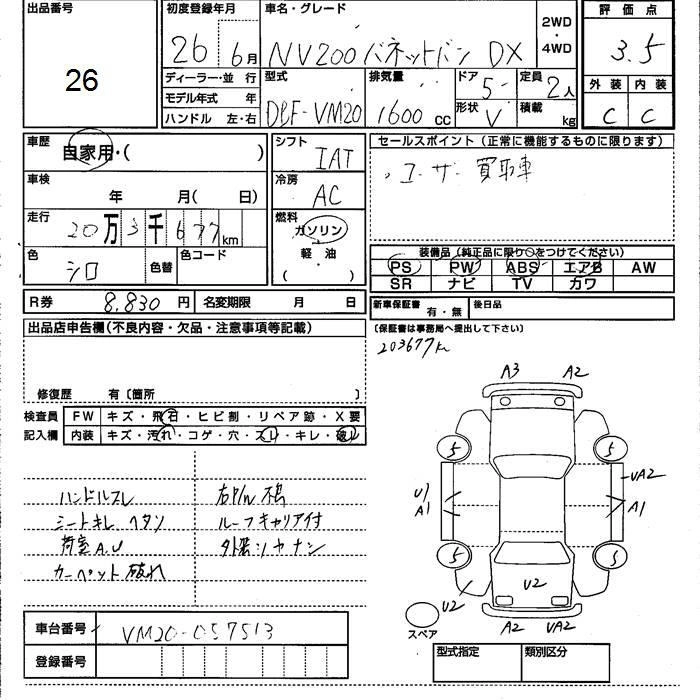 出品番号
26
初度登録年月
26 6月
ディーラー・並 行
モデル年式 年
ハンドル 左・右
車名・グレード
NV200 バネットバン DX
2WD
・
4WD
型式
DBF-VM20
排気量
1600 cc
ドア 5
形状 V
定員 2人
積載 kg
評価点
3.5
外装 内装
C C
車歴
自家用・( )
車検
年 月( 日)
走行
20万3千677km
色
シロ
色替
色コード
シフト
IAT
冷房
AC
燃料
ガソリン
軽・油
( )
セールスポイント (正常に機能するものに限ります)
ユーザー買取車
装備品(純正品に限り○をつけてください)
PS PW ABS エアB AW
SR ナビ TV カワ
R券 8,830 円 名変期限 月 日
新車保証書 有・無 後日品
(保証書は事務局へ提出して下さい)
203677K
出品店申告欄(不良内容・欠品・注意事項等記載)
修復歴 有〔箇所 〕
検査員
記入欄
FW キズ・飛石・ヒビ割・リペア跡・X要
内装 キズ・汚れ・コゲ・穴・スレ・キレ・破レ
ハンドルスレ
シートキレ ヘタリ
荷室A.U
カーペット破れ
ルーフキャリア付
A3 A2
5 5
U1
A1
UA2
A1
5 5
U2
U2
A2 UA2
スペア
車台番号 VM20-057513
登録番号
型式指定 類別区分